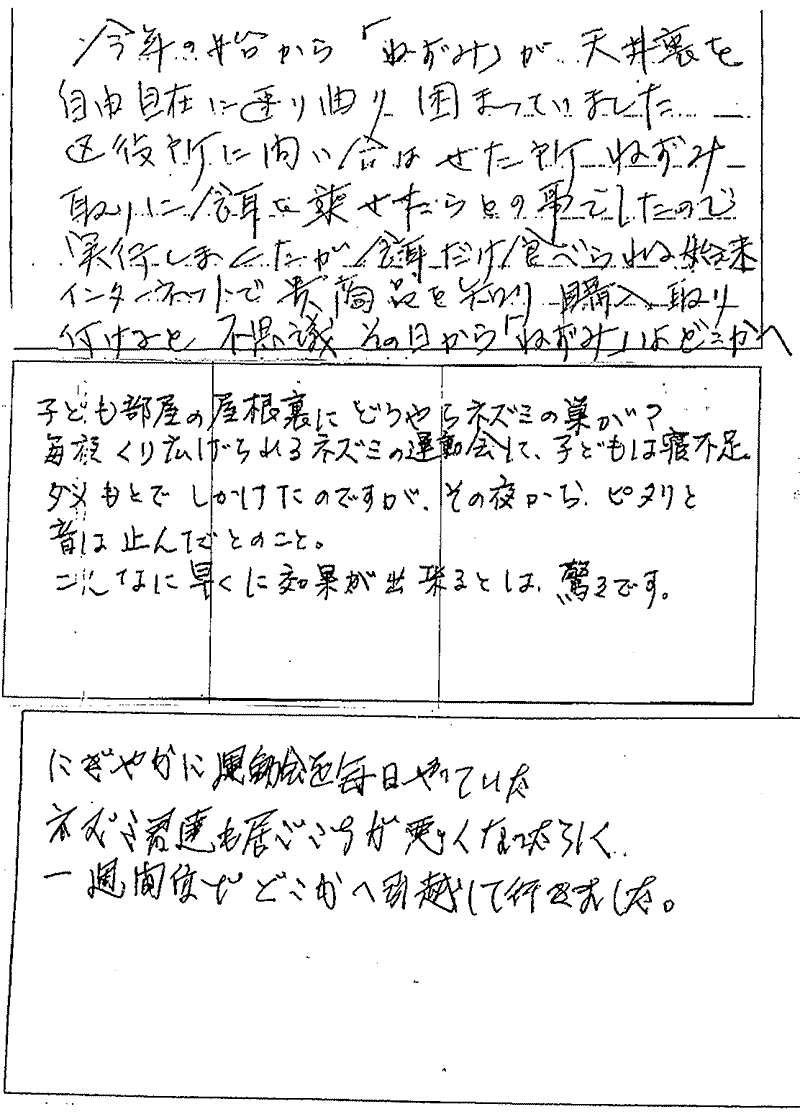 今年の始から「ねずみ」が天井裏を
自由自在に走り回り困まっていました
区役所に問い合はせた所ねずみ
取りに餌を乗せたらとの事でしたので
実行しましたが餌だけ食べられる始末
インターネットで貴商品を知り購入取り
付けると不思議その日から「ねずみ」はどこかへ
子ども部屋の屋根裏にどうやらネズミの巣が?
毎夜くり広げられるネズミの運動会で、子どもは寝不足。
ダメもとでしかけたのですが、その夜から、ピタリと
音は止んだとのこと。
こんなに早くに効果が出来るとは、驚きです。
にぎやかに運動会を毎日やっていた
ネズミ君達も居ごこちが悪くなったらしく、
一週間位でどこかへ引越して行きました。